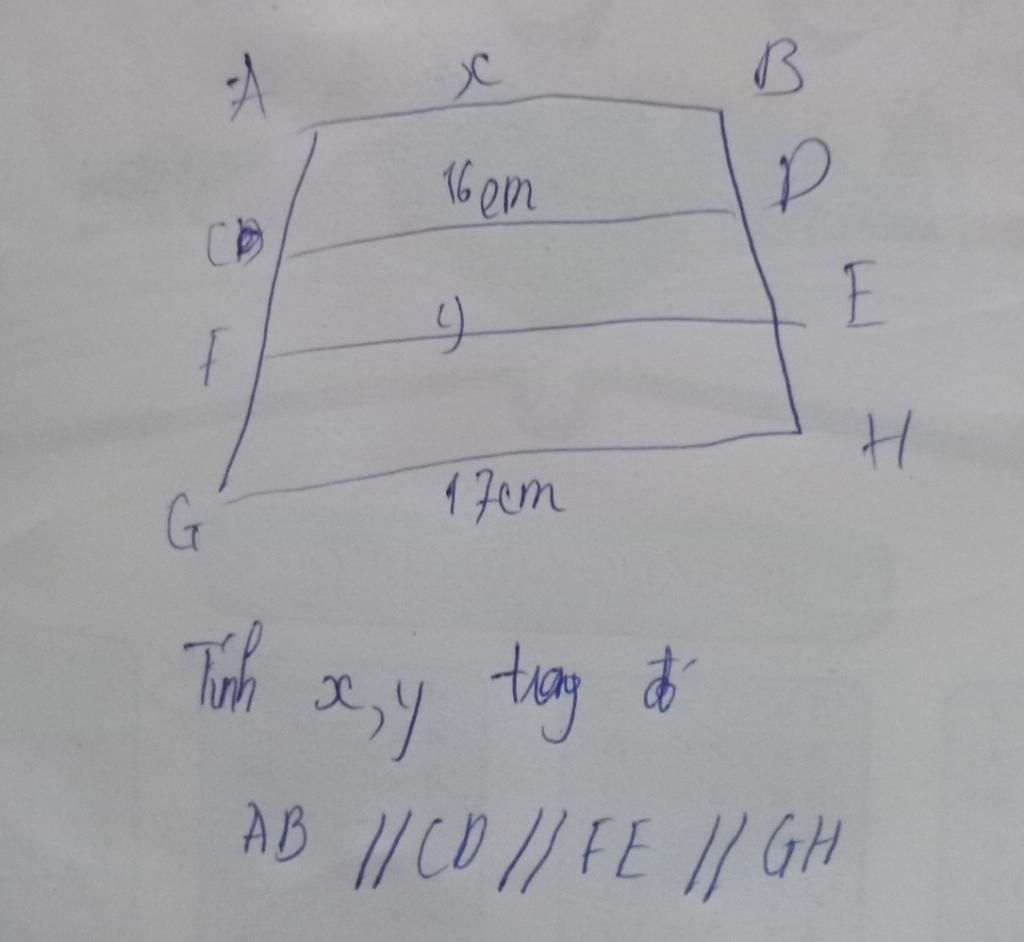 A x B
16cm D
C
y E
F
H
17cm
G
Tính x,y trong đó
AB // CD // FE // GH